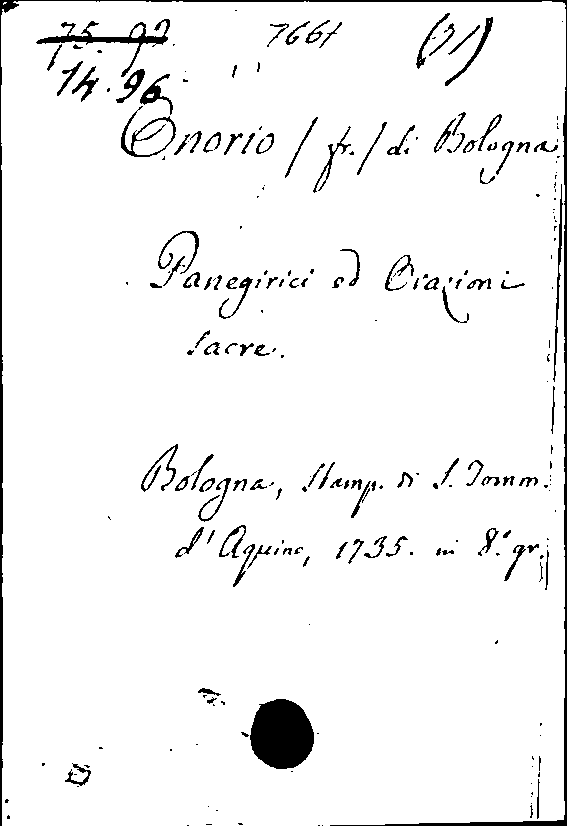 75. 92 7661 (31)
14.96
Onorio / fr. / di Bologna
Panegirici ed Orazioni
sacre.
Bologna, stamp. di S. Tomm.
d'Aquino, 1735. in 8.º gr.